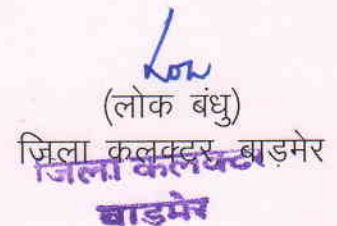 (लोक बंधु)
जिला कलक्टर, बाड़मेर
जिला कलक्टर
बाड़मेर